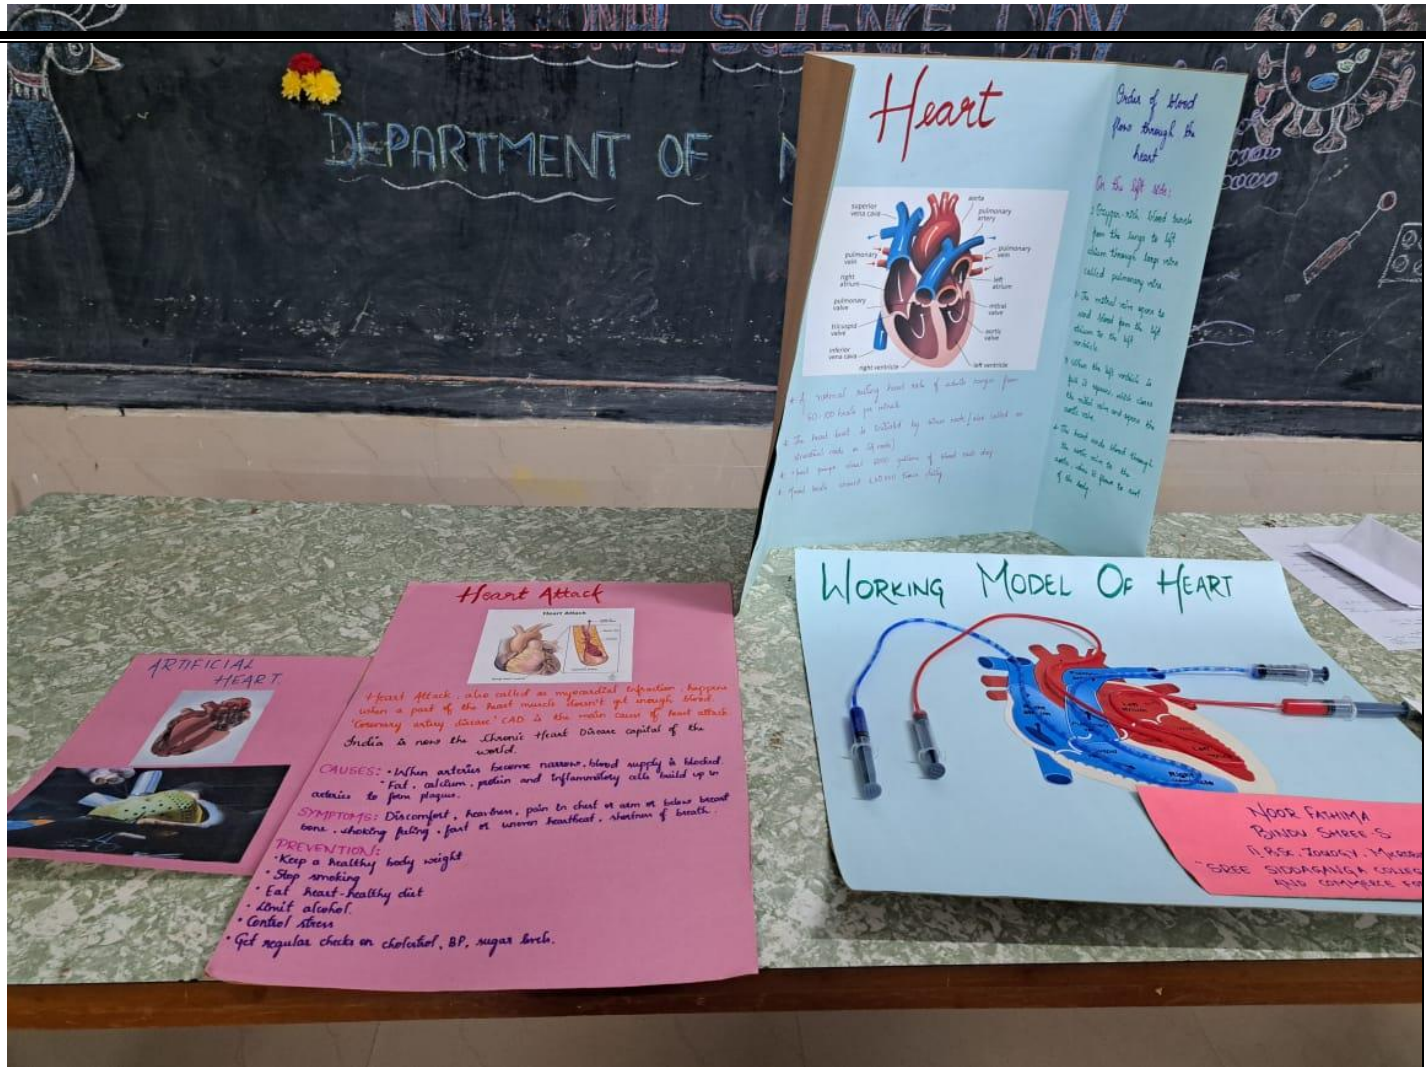 NATIONAL SCIENCE DAY
DEPARTMENT OF
Heart
superior
vena cava
aorta
pulmonary
artery
pulmonary
vein
pulmonary
vein
right
atrium
left
atrium
pulmonary
valve
mitral
valve
tricuspid
valve
aortic
valve
inferior
vena cava
right ventricle
left ventricle
* A normal resting heart rate of adults ranges from
60-100 beats per minute
* The heart beat is initiated by sinus node / also called as
sinoatrial node or SA node)
* heart pumps about gallons of blood each day
* Heart beats around times daily
Order of blood
flow through the
heart
On the left side:
Oxygen-rich blood travels
from the lungs to left
atrium through large veins
called pulmonary veins
The mitral opens to
send blood from the left
atrium to the left
ventricle
* When the left ventricle is
full it squeezes, which closes
the mitral and opens the
aortic valve
* The heart sends blood through
the aortic to the
aorta, flows to rest
of the body
WORKING MODEL OF HEART
Left
Right
NOOR FATHIMA
BINDU SHREE.S
BSc, ZOOLOGY,
"SREE SIDDAGANGA
AND COMMERCE
Heart Attack
Heart Attack
Heart Attack, also called as myocardial infarction, happens
when a part of the heart muscle doesn't get enough blood.
'Coronary artery disease' CAD is the main cause of heart attack
India is now the Chronic Heart Disease capital of the
world.
CAUSES: • When arteries become narrow, blood supply is blocked.
• Fat, calcium, protein and inflammatory cells build up in
arteries to form plaques.
SYMPTOMS: Discomfort, heaviness, pain in chest or arm or below breast
bone, choking feeling, fast or uneven heartbeat, shortness of breath.
PREVENTION:
• Keep a healthy body weight
• Stop smoking
• Eat heart-healthy diet
• Limit alcohol.
• Control stress
• Get regular checks on BP, sugar levels.
ARTIFICIAL
HEART.